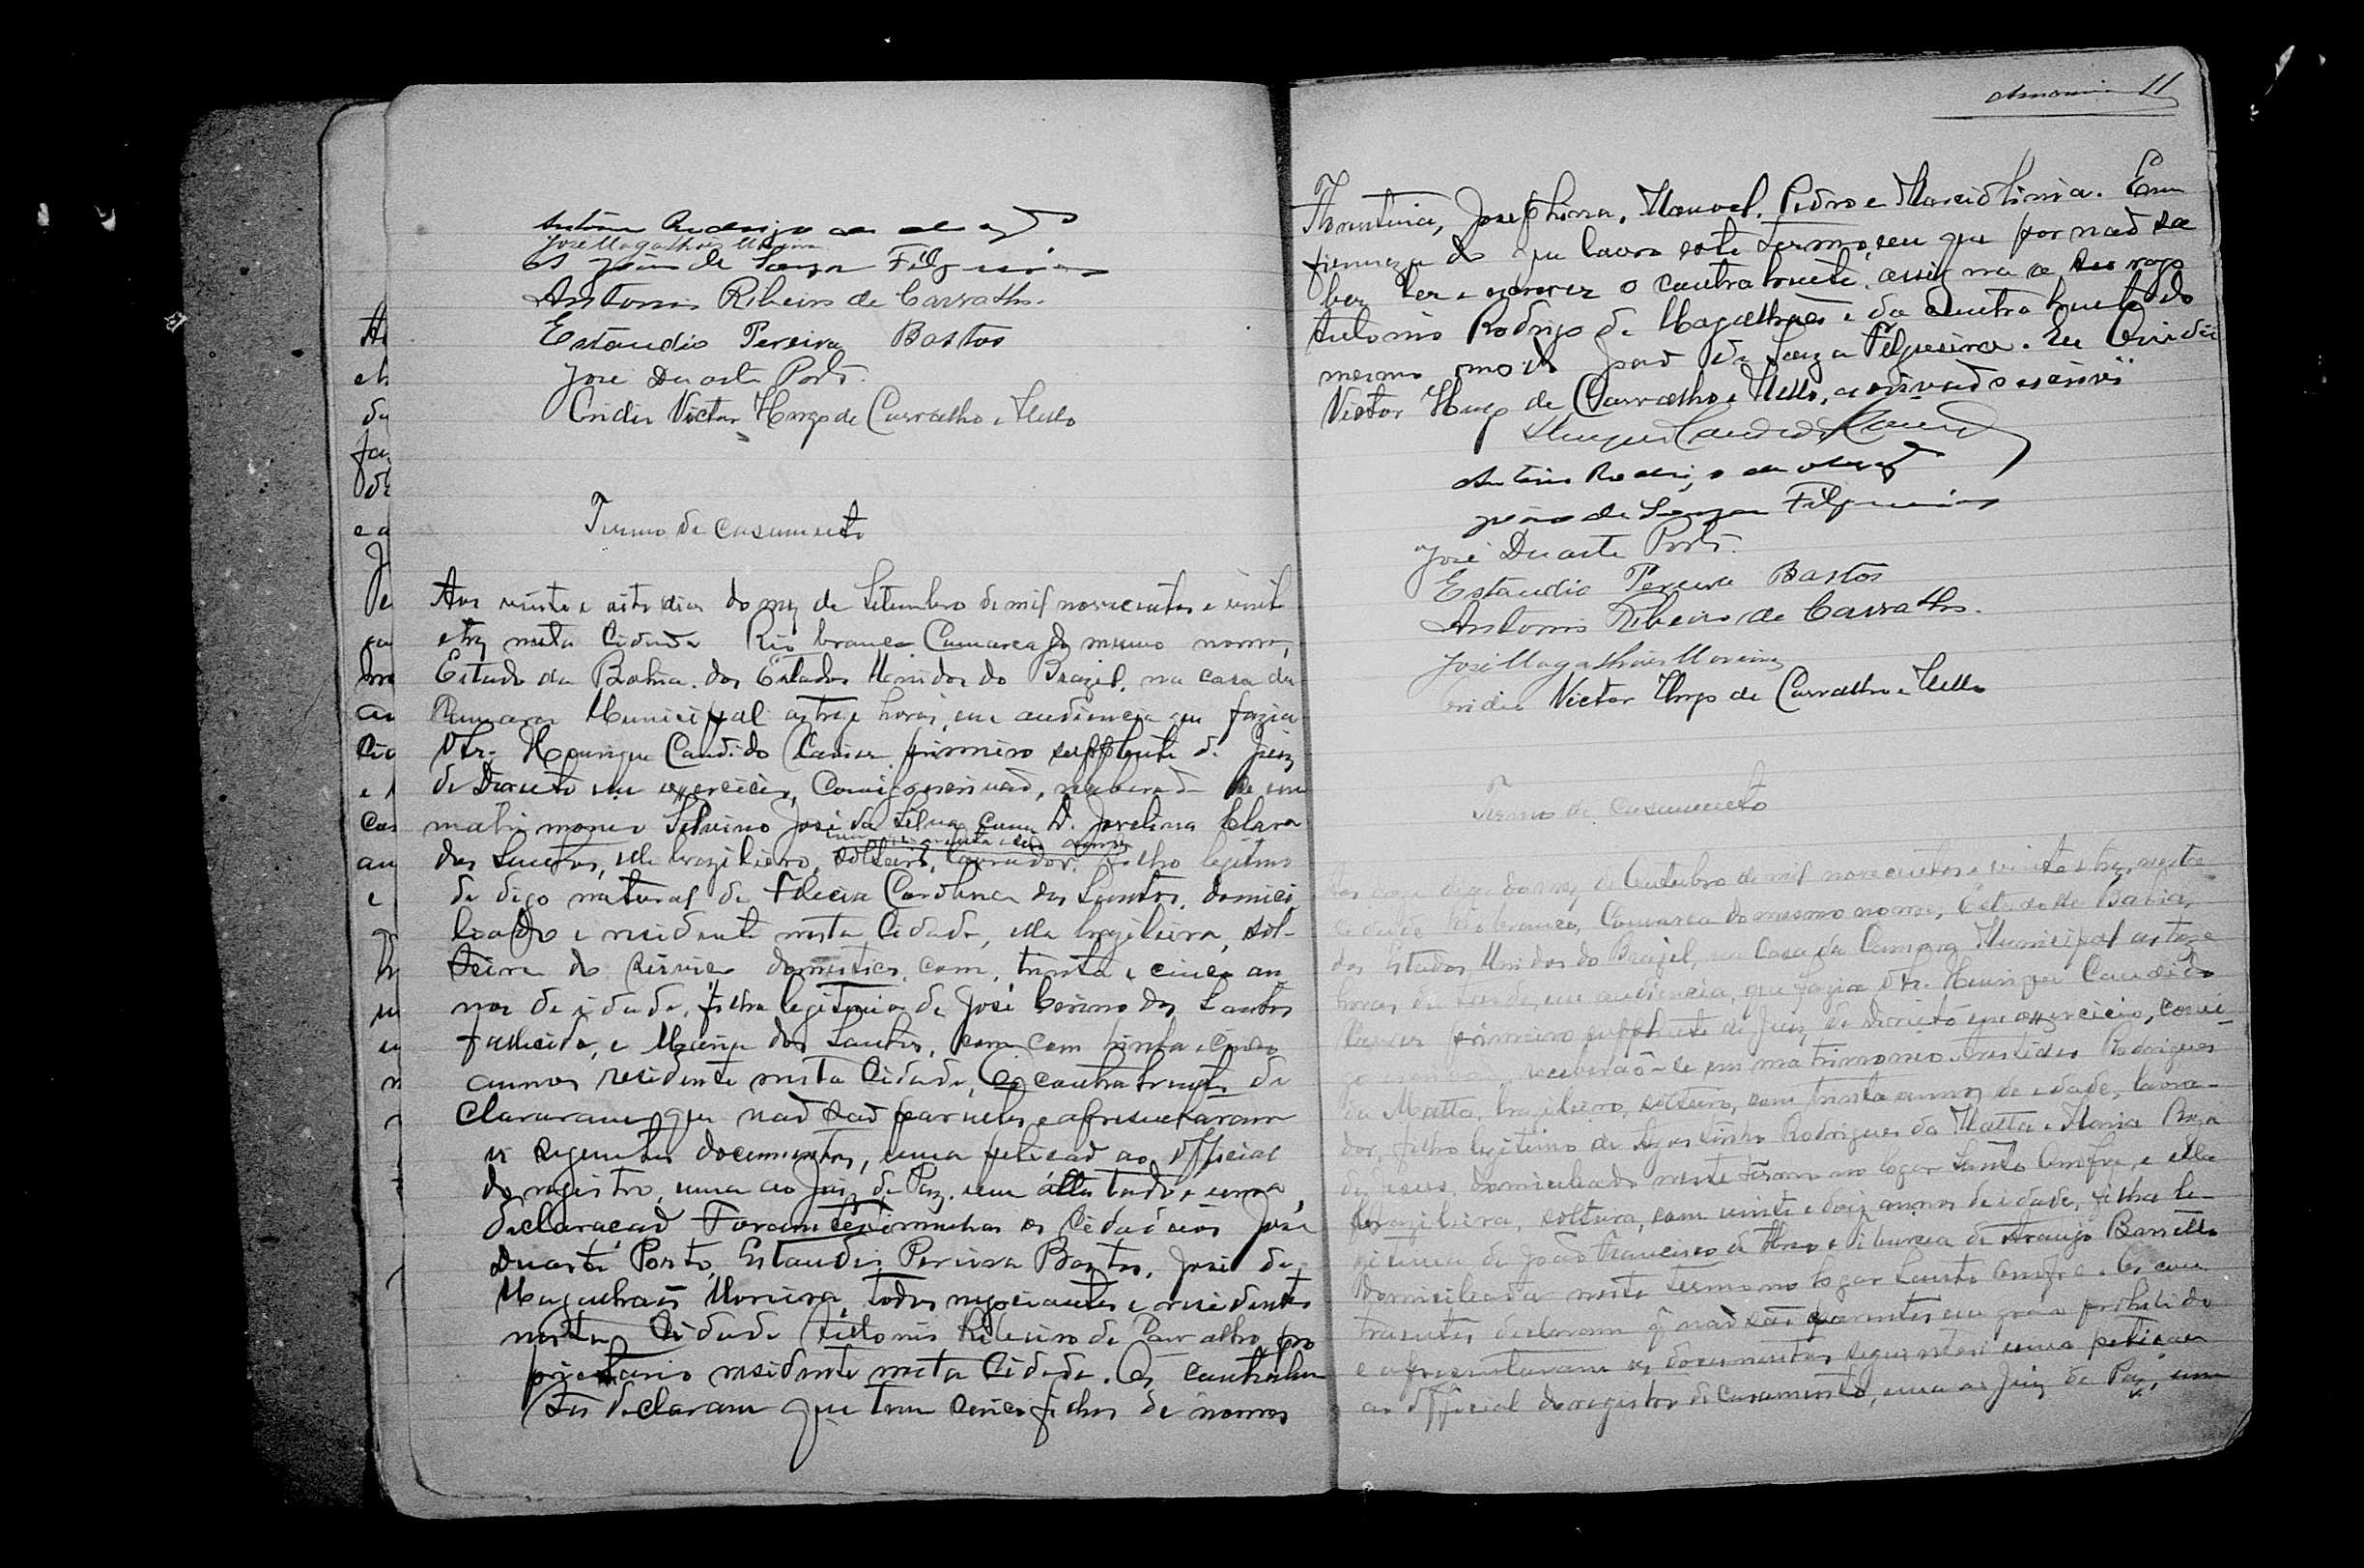 José Magalhães Moreira
João de Souza Filgueiras
Antonio Ribeiro de Carvalho.
Estaudio Pereira Bastos
José Duarte Porto.
Victor Hugo de Carvalho e Mello
Termo de casamento
Aos vinte e oito dias do mez de Setembro de mil novecentos e vinte
e trez nesta Cidade Rio branco Comarca do mesmo nome,
Estado da Bahia, dos Estados Unidos do Brazil, na casa da
Camara Municipal as treze horas, em audiencia que fazia
Henrique Candido primeiro supplente de Juiz
de Direito em exercicio, comigo escrivaõ, receberaõ-se em
matrimoneo José da Silva com D. Jovelina Clara
dos Santos, elle brazileiro, solteiro, lavrador, filho legitimo
de digo natural de Felicia Carolina dos Santos, domici
liado e residente nesta Cidade, ella brazileira, sol-
teira de serviço domestico, com trinta e cinco an
nos de idade, filha legitima de José dos Santos
fallecido, e Maria dos Santos, com trinta e cinco
annos residente nesta Cidade, Os contrahentes de
clararam que naõ saõ parentes e apresentaram
os seguintes documentos, uma peticaõ ao official
do registro, uma ao Juiz de Paz, um attestado e uma
declaraçaõ Foram testimunhas os Cidadãos José
Duarte Porto, Estaudio Pereira Bastos, José de
Magalhães Moreira, todos negociantes e residentes
nesta Cidade Antonio Ribeiro de Carvalho, pro
prietario residente nesta Cidade. Os contrahen
tes declaram que tem cinco filhos de nomes
11
Josephina, Manoel, Pedro e Em
firmeza do que lavro este termo, em que por naõ sa
ber ler e escrever o contrahente, assigna a seu rogo
Antonio Rodrigo de Magalhães e da contrahente do
mesmo modo João de Souza Filgueiras. Eu
Victor Hugo de Carvalho e Mello, escrivaõ o escrevi
João de Souza Filgueiras
José Duarte Porto.
Estaudio Pereira Bastos
Antonio Ribeiro de Carvalho.
José Magalhães Moreira
Victor Hugo de Carvalho e Mello
Termo de casamento
Aos doze dias do mez de Outubro de mil novecentos e vinte e trez, nesta
Cidade Rio branco, Comarca do mesmo nome, Estado da Bahia,
dos Estados Unidos do Brazil, na Casa da Camara Municipal as treze
horas da tarde, em audiencia, que fazia Henrique Candido
primeiro supplente de Juiz de Direito em exercicio, comi-
go escrivaõ, receberaõ-se em matrimoneo Aristides Rodrigues
da Matta, brazileiro, solteiro, com trinta annos de idade, lavra-
dor, filho legitimo de Agostinho Rodrigues da Matta e Maria Roza
de Jesus, domiciliado neste termo no logar Santo Onofre, e ella
brazileira, solteira, com vinte e dois annos de idade, filha le
gitima de João Francisco de e de Araujo Barretto
domiciliada neste termo no logar Santo Onofre. Os con
trahentes declaram q naõ saõ parentes em gráo prohibido
e apresentaram os documentos seguintes: uma peticaõ
ao official do registro de casamento, uma ao Juiz de Paz, um